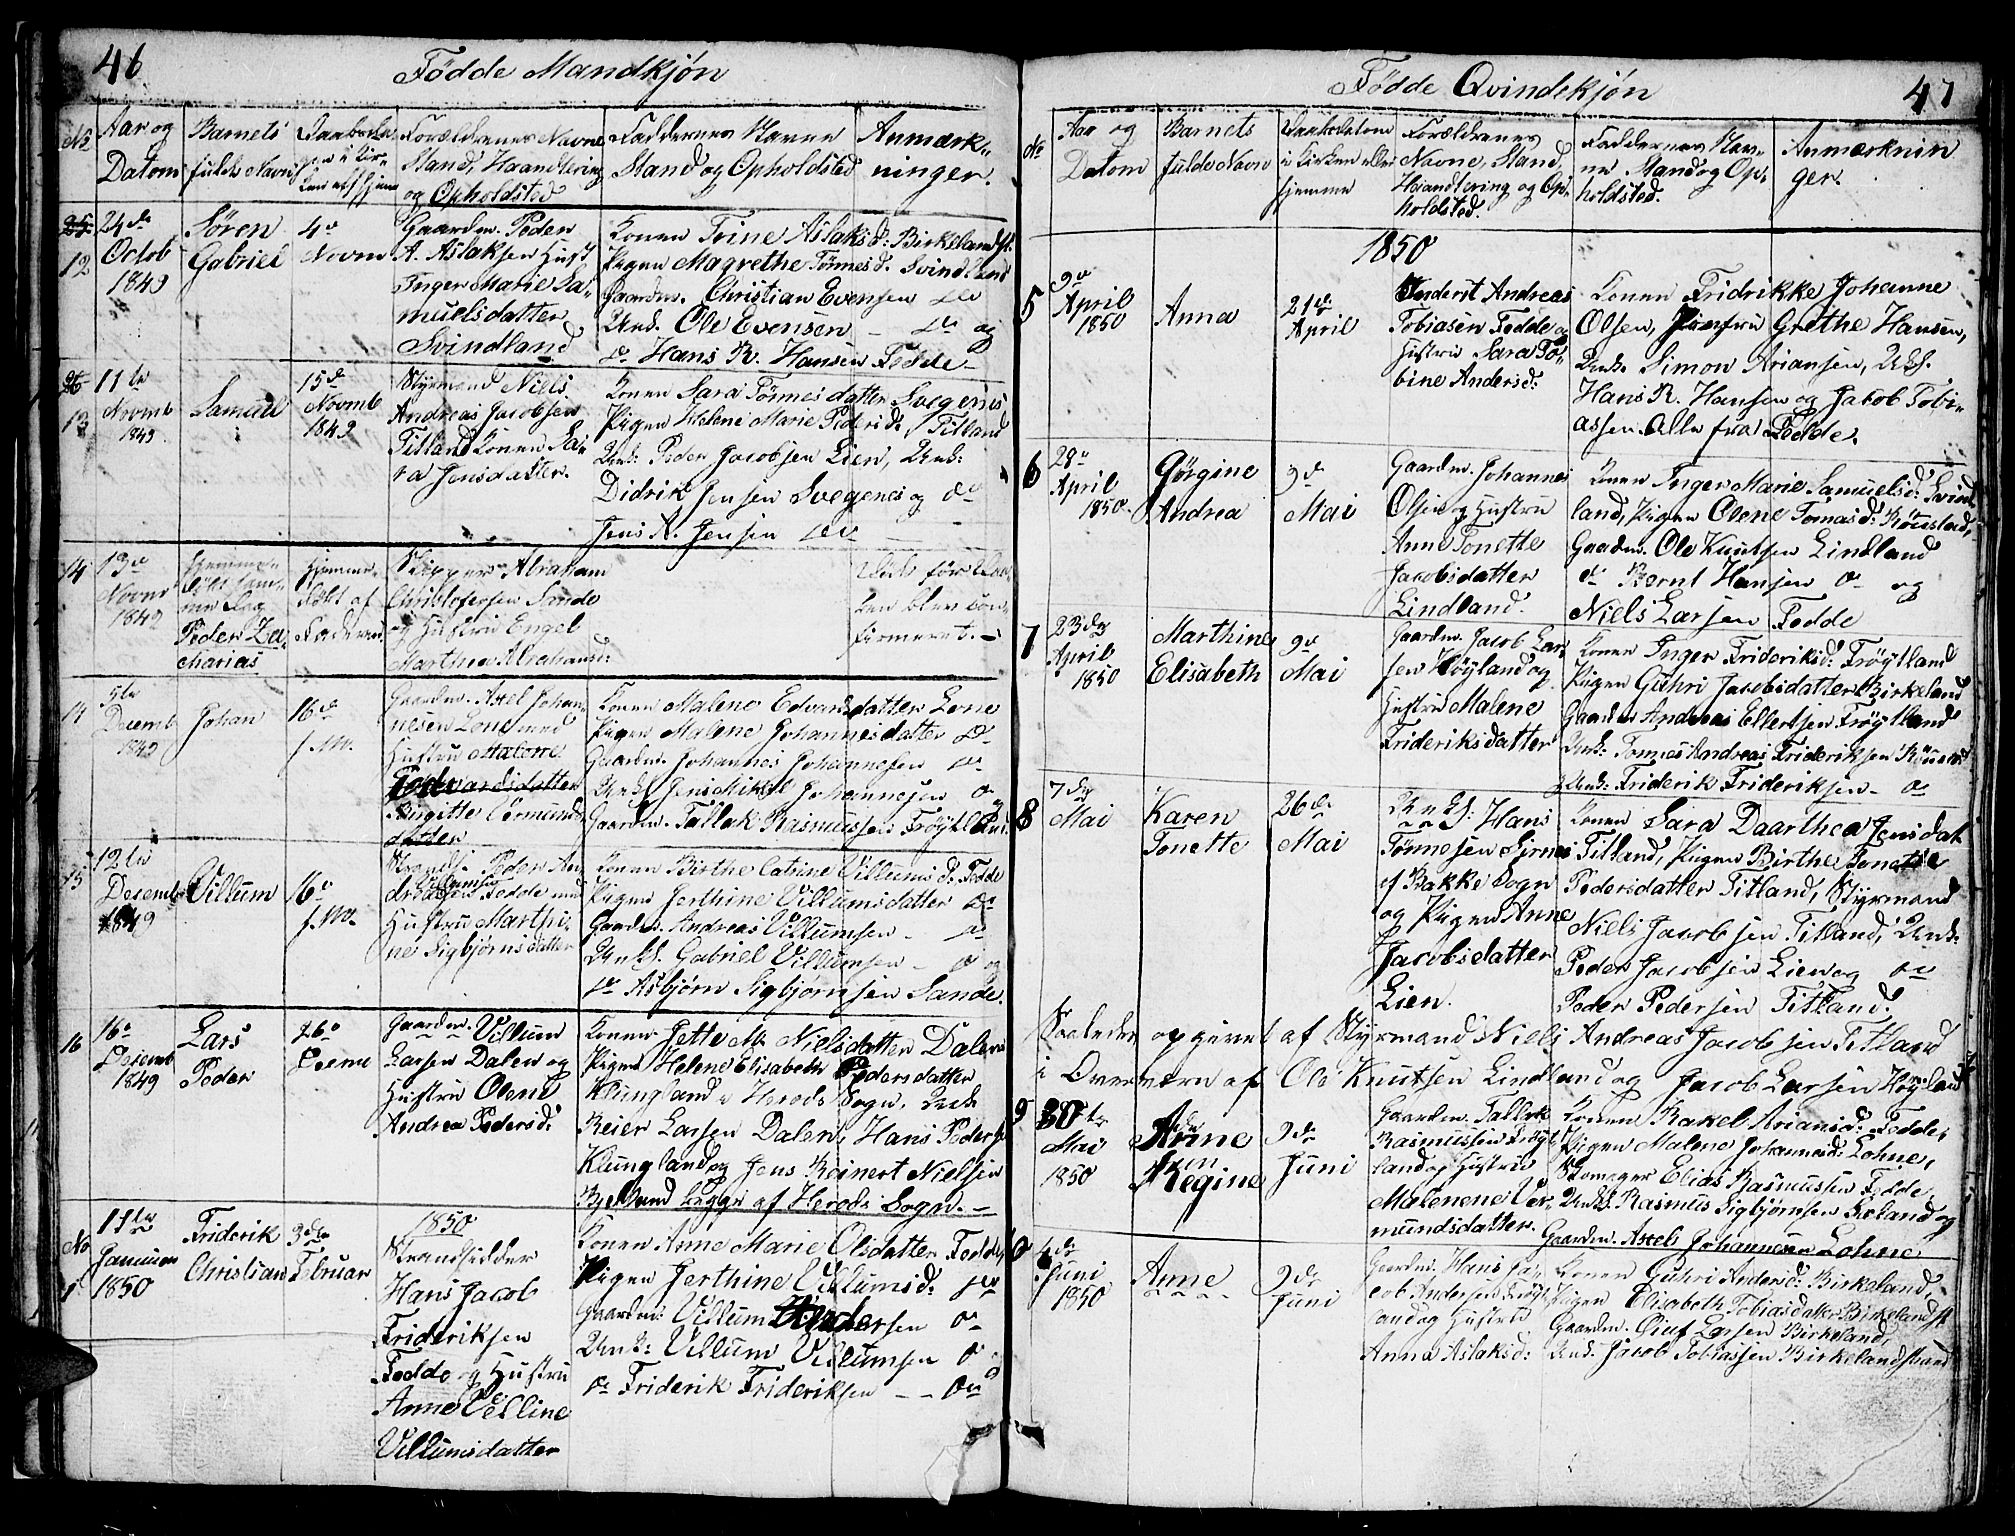 46
Födde Mandkjøn
No
Aar og
Datom
Barnets
fulde Navn
Forældrenes Navne
Stand, Haandtering
og Opholdsted
Faddernes Navne
Stand og Opholdsted
Anmærk-
ninger.
12
24de
Octob
1849
Søren
Gabriel
4de
Novm
Gaardm. Peder
A. Aslaksen Hust
Inger Marie Sa-
muelsdatter
Svindland
Konen Trine Aslaksd: Birkelandst.
Pigen Magrethe Tønnesd. Svindland
Gaardm. Christian Evensen do
Unk. Ole Evensen - do og
do Hans R. Hansen Fedde -
13
11te
Novmb
1849
Samuel
15de
Novmb
1849
Styrmand Niels
Andreas Jacobsen
Titland Konen Sa-
ra Jensdatter.
Konen Sara Tønnesdatter Svegenes
Pigen Helene Marie Pedersd. Titland
Unk: Peder Jacobsen Lien, Unk:
Didrik Jensen Svegenes og do
Jens A. Jensen do
14
13de
Novmr
1849
Hjemme-
døbt sam-
me Dag
Peder Za-
charias
Hjemme-
døbt af
Faderen
Skipper Abraham
Christofersen Sande
og Hustru Engel
Marthea Abrahamsd:
Døde før Daa-
ben blev con-
firmeret. -
14
5te
Desemb
1849
Johan
16de
s. M.
Gaardm. Axel Johan-
nesen Lone med
Hustru Malene
Edvardsdatter
Birgitte Vermunds-
datter
Konen Malene Edvardsdatter Lone
Pigen Malene Johannesdatter do
Gaardm. Johannes Johannesen do
Unk. Jens Mikkel Johannesen do
Gaardm. Tallak Rasmussen Frøytland
15
12te
Desemb
1849
Villum
16de
s. M.
Strands. Peder An-
dreasen Villumsen Fedde med
Hustru Marthi-
ne Sigbjørnsdatter
Konen Birthe Catrine Villumsd: Fedde
Pigen Jerthine Villumsdatter do
Gaardm. Andreas Villumsen - do
Unk. Gabriel Villumsen - do og
do Asbjørn Sigbjørnsen Sande.
16
16de
Desemb
1849
Lars
Peder
26de
Desemr
Gaardm. Villum
Larsen Dalen og
Hustru Olene
Andrea Pedersd:
Konen Jette M. Nielsdatter Dalen
Pigen Helene Elisabeth Pedersdatter
Klungland i Herods Sogn, Unk.
Reier Larsen Dalen, Hans Peders.
Klungland og Jens Reinert Nielsen
Bjelland begge af Herods Sogn. -
No
1
17te
Januar
1850
Friderik
Christian
3die
Februar
1850
Strandsidder
Hans Jacob
Frideriksen
Fedde og Hustru
Anne Elline
Villumsdatter
Konen Anne Marie Olsdatter Fedde,
Pigen Jerthine Villumsd: do
Gaardm: Villum Andersen do
Unk: Villum Villumsen do
do Friderik Frideriksen - - do
47
Födde Qvindekjön
No
Aar og
Datom
Barnets
fulde Navn
Daabsdatom
i Kirken eller
hjemme
Forældrenes
Navne, Stand,
Haandtering og Op-
holdsted.
Faddernes Nav-
ne Stand og Op-
holdsted.
Anmærknin
ger.
1850
5
9de
April
1850
Anna
21de
April
Andreas
Tobiasen Fedde og
Hustru Sara To-
bine Andersd:
Konen Fridrikke Johanne
Olsen, Jomfru Grethe Hansen,
Unk: Simon Ariansen, Unk.
Hans R. Hansen og Jacob Tobi-
assen. Alle fra Fedde.
6
28de
April
1850.
Gørgine
Andrea
9de
Mai
Gaardm. Johannes
Olsen og Hustru
Anne Tonette
Jacobsdatter
Lindland.
Konen Inger Marie Samuelsd: Svind
land, Pigen Olene Tomasd: Røusland,
Gaardm. Ole Knutsen Lindland
do Bernt Hansen do og
Niels Larsen Fedde
7
23de
April
1850
Marthine
Elisabeth
9de
Mai
Gaardm. Jacob Lar-
sen Høyland og
Hustru Malene
Frideriksdatter
Konen Inger Frideriksd: Frøytland
Pigen Guhri Jacobsdatter Birkeland
Gaardm Andreas Ellertsen Frøytland
Unk: Tomas Andreas Frideriksen Røusland
Unk: Friderik Frideriksen - do
8
7de
Mai
Karen
Tonette
26de
Mai
Unks: Hans
Tønnesen Sirnes
af Bakke Sogn
og Pigen Anne
Jacobsdatter
Lien.
Konen Sara Daarthea Jensdat
Titland, Pigen Birthe Tonette
Pedersdatter Titland, Styrmand
Niels Jacobsen Titland, Unk:
Peder Jacobsen Lien og do
Peder Pedersen Titland.
Saaledes opgivet af Styrmand Niels Andreas Jacobsen Titland
i Overværn af Ole Knutsen Lindland og Jacob Larsen Høyland
9
30te
Mai
1850
Anne
Regine
9de
Juni
Gaardm. Tallak
Rasmussen Frøyt-
land og Hustru
Malenene Ver-
mundsdatter.
Konen Rakel Ariansd: Fedde,
Pigen Malene Johannesd: Lohne,
Skomager Elias Rasmussen Fedde,
Unk. Rasmus Sigbjørnsen Eeland og
Gaardm. Axel Johannesen Lohne
10
4de
Juni
1850
Anne
9de
Juni
Gaardm. Hans Ja-
cob Andersen Frøyt-
land og Hustru
Anna Aslaksd:
Konen Guhri Andersd: Birkeland,
Pigen Elisabeth Tobiasdatter Birkelandst
Gaardm. Oluf Larsen Birkeland,
Unk: Jacob Tobiassen Birkelandstrand